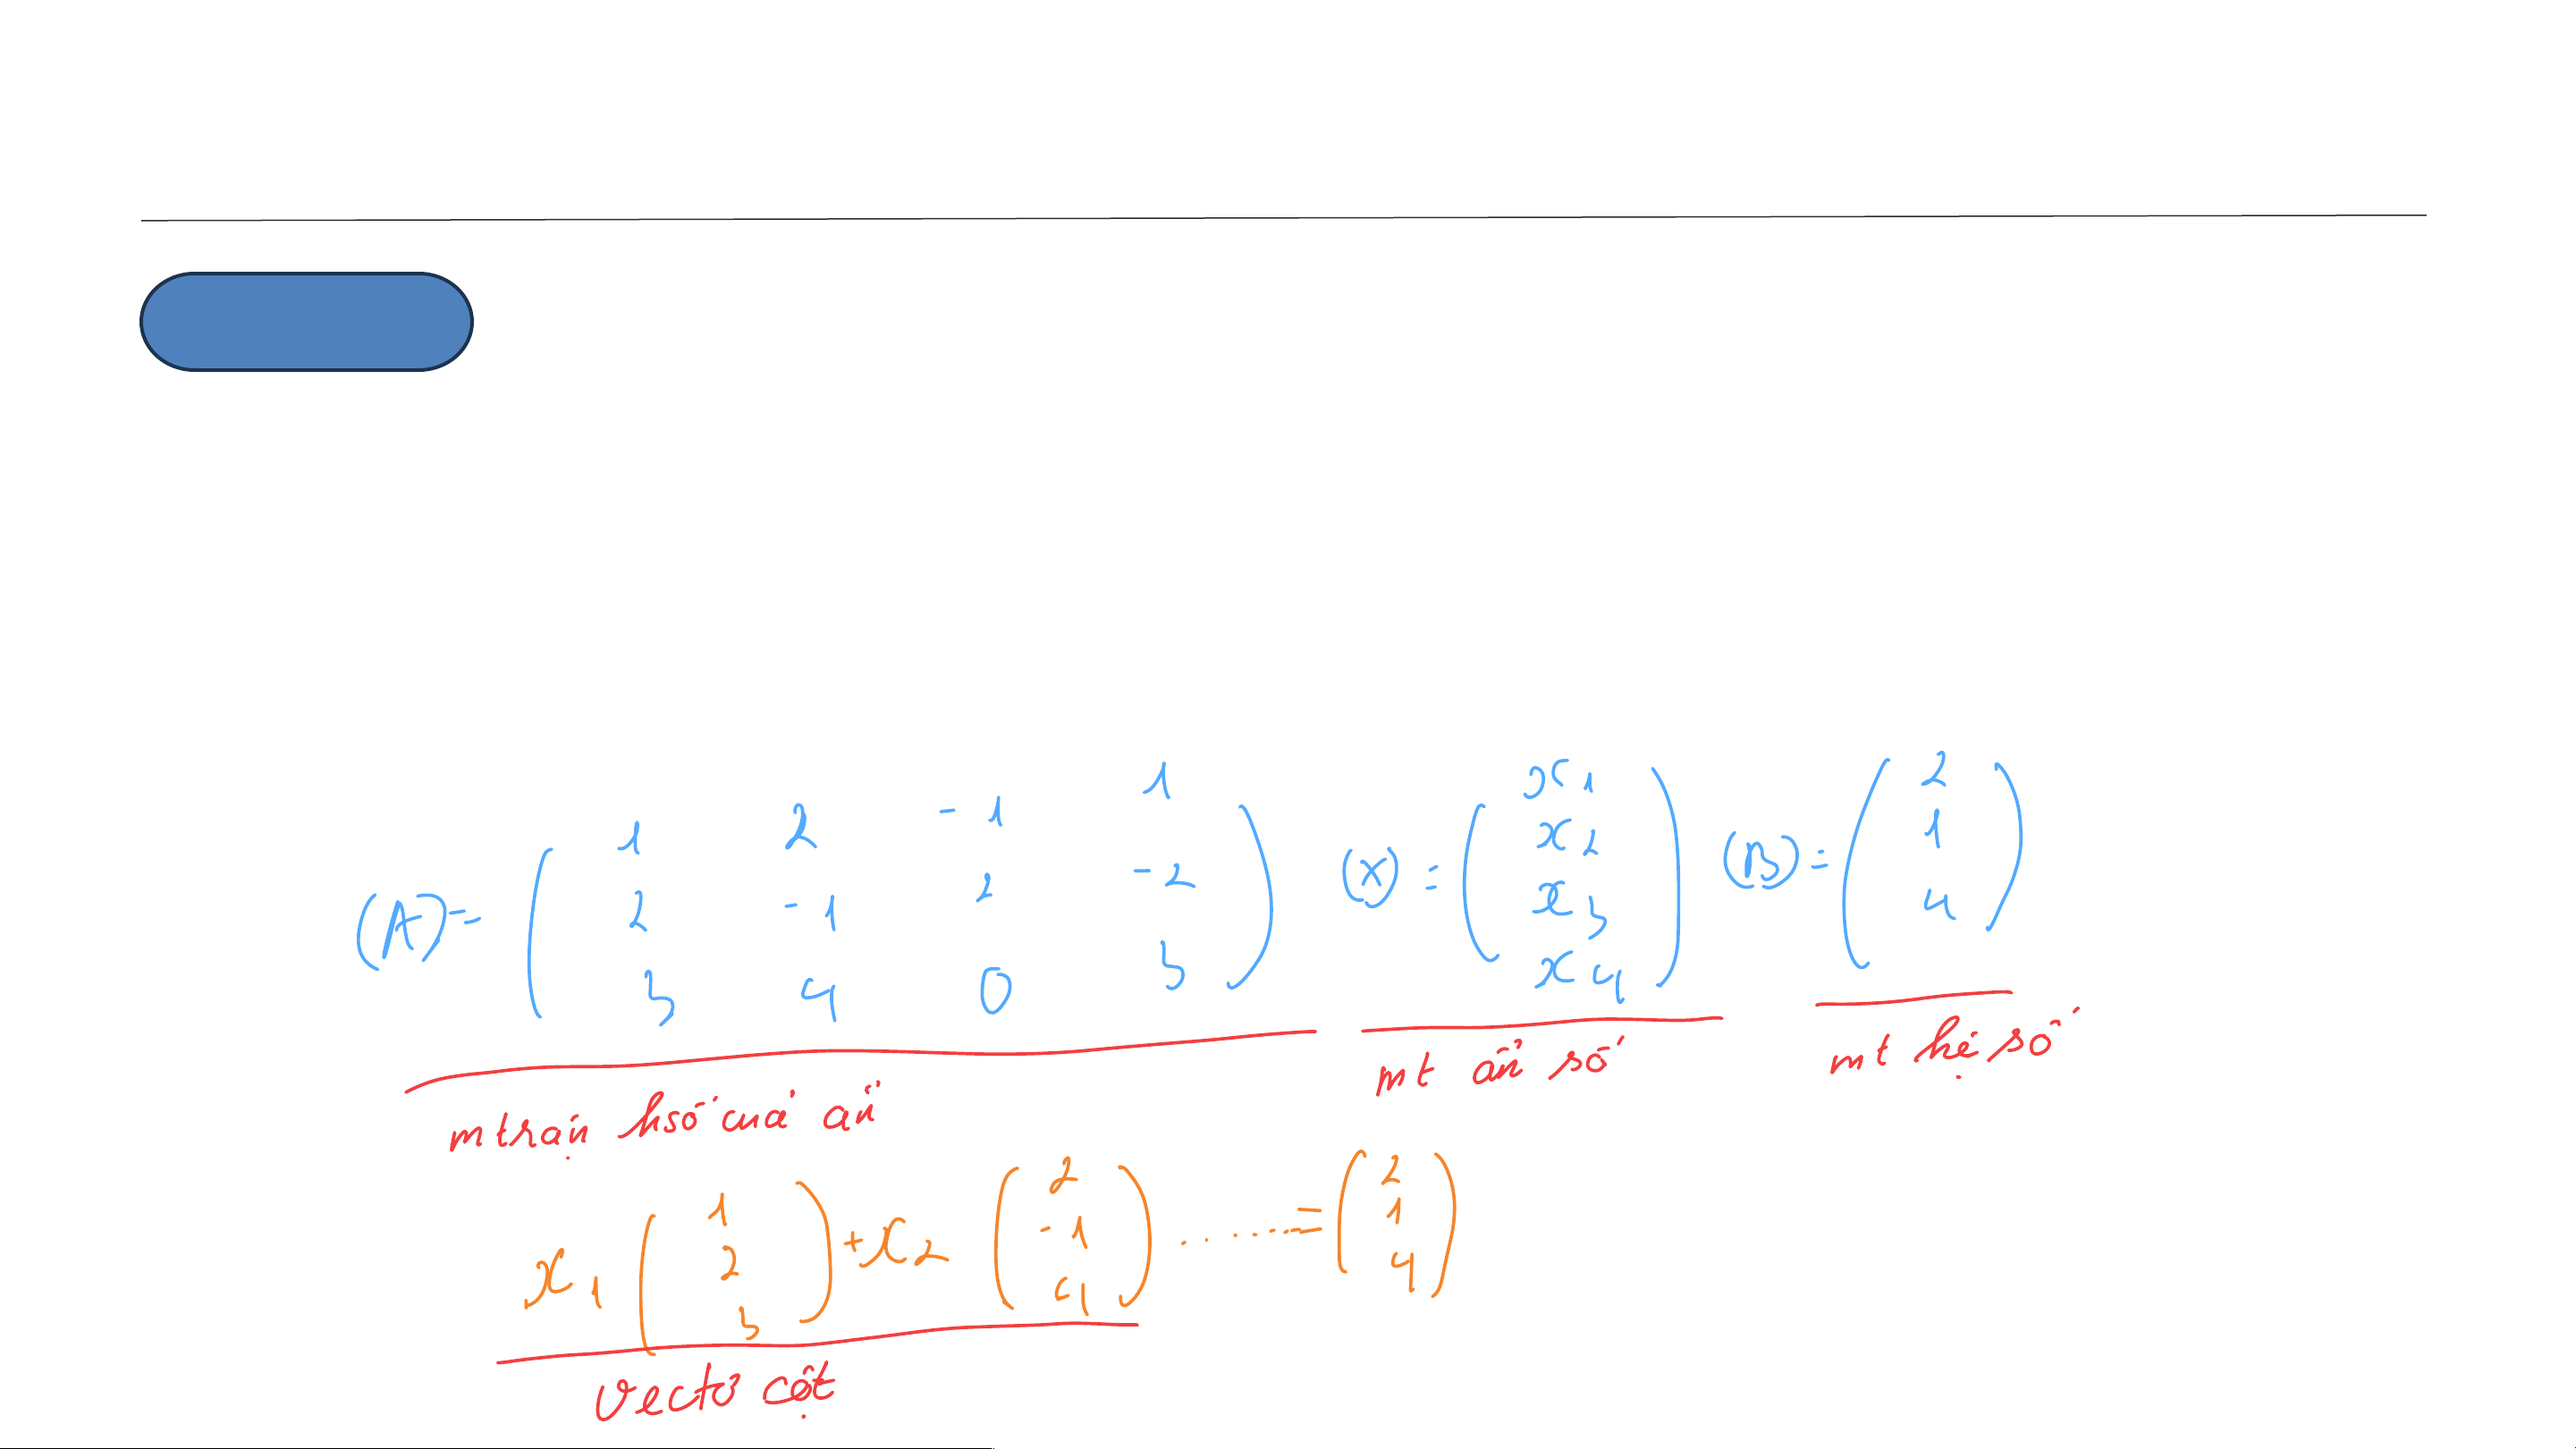 (A) = ( 1 2 -1 1
2 -1 2 -2
3 4 0 3 )
(X) = ( x1
x2
x3
x4 )
(B) = ( 2
1
4 )
mtrận hsố của ẩn
mt ẩn số
mt hệ số
x1 ( 1 2 3 ) + x2 ( 2 -1 4 ) ........ = ( 2 1 4 )
Vectơ cột